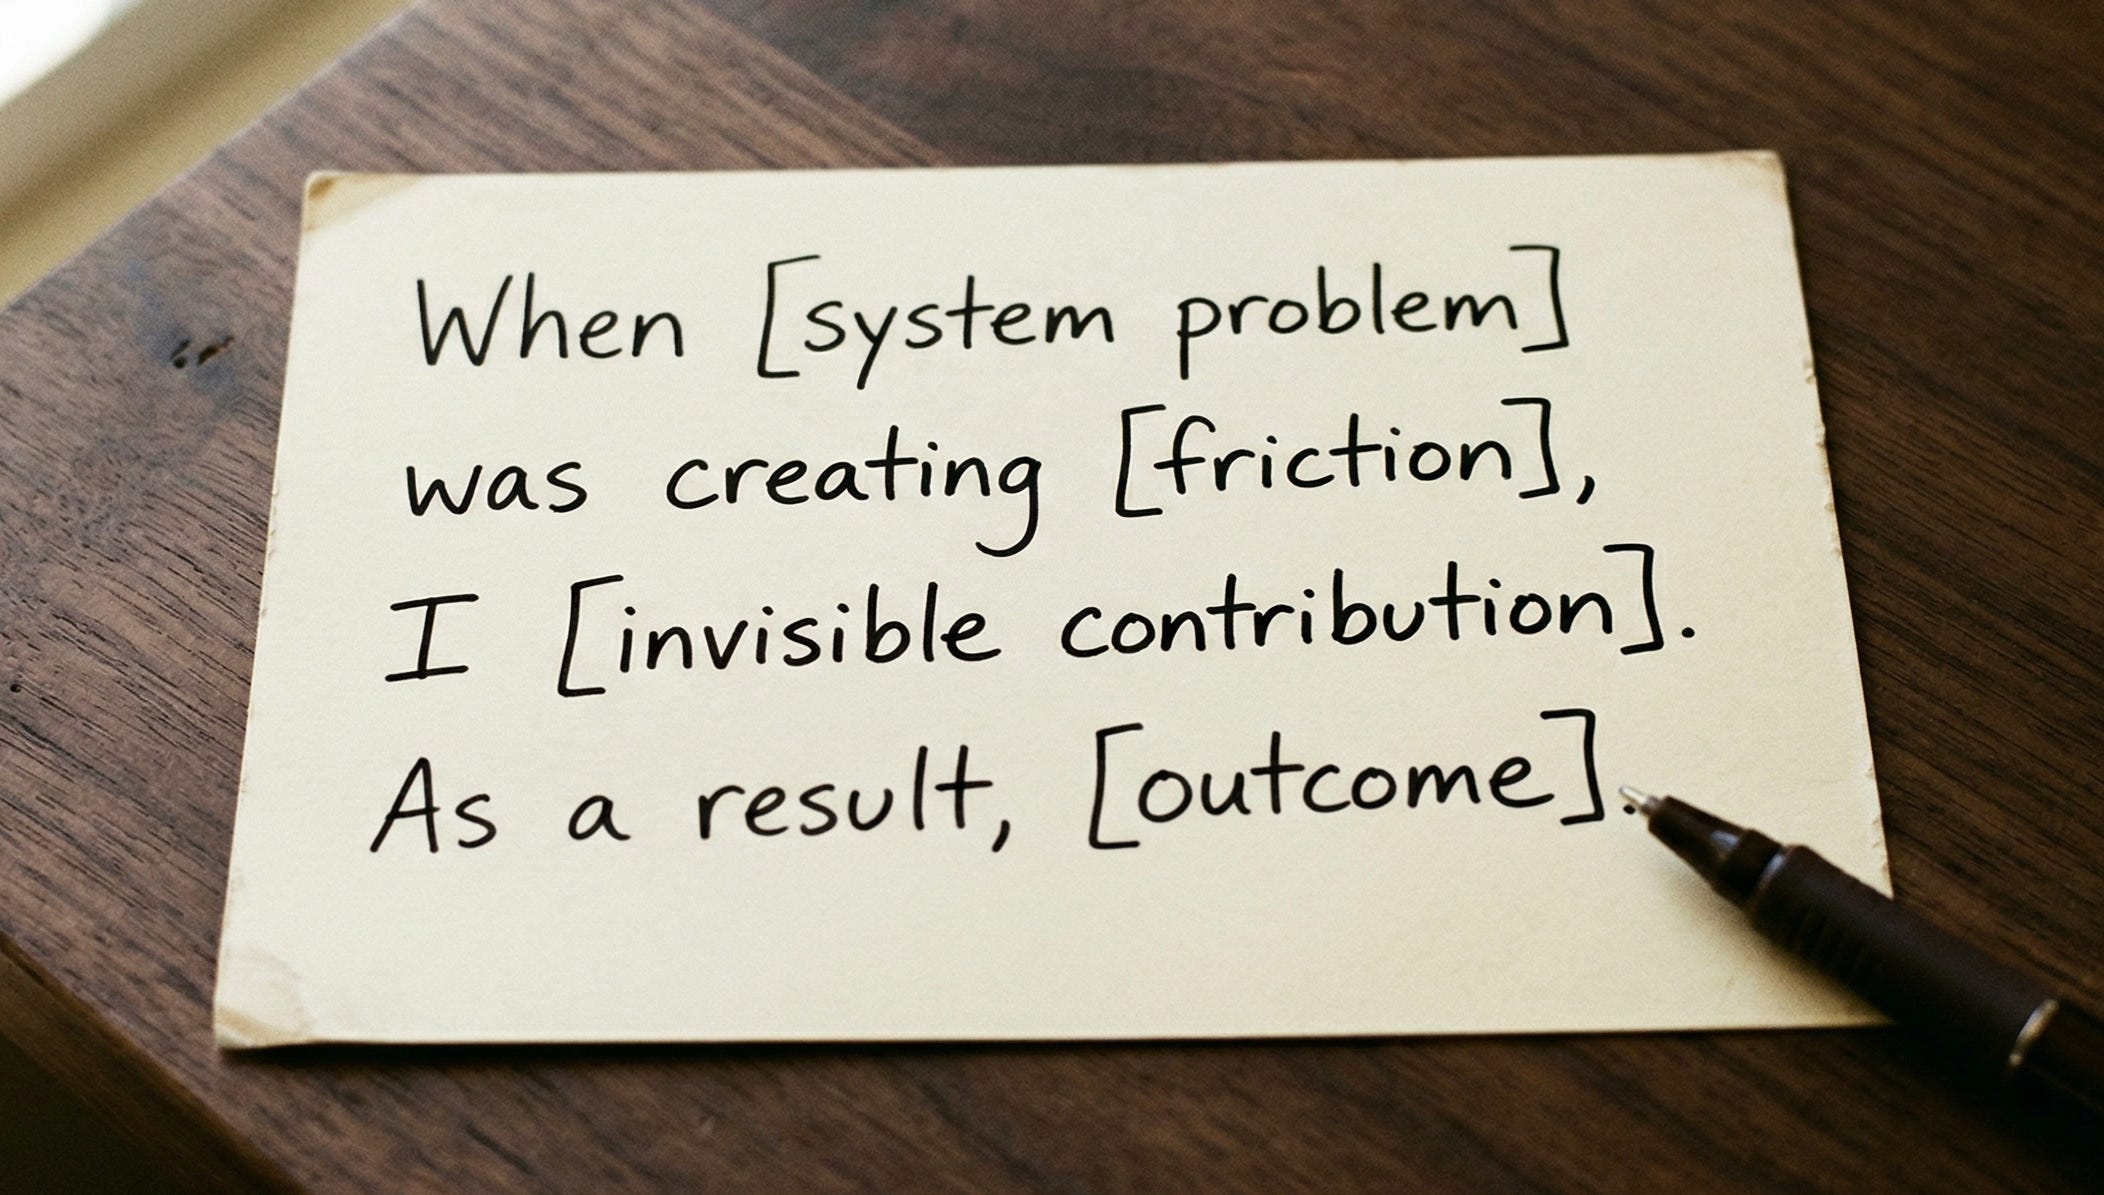 When [system problem]
was creating [friction],
I [invisible contribution].
As a result, [outcome].